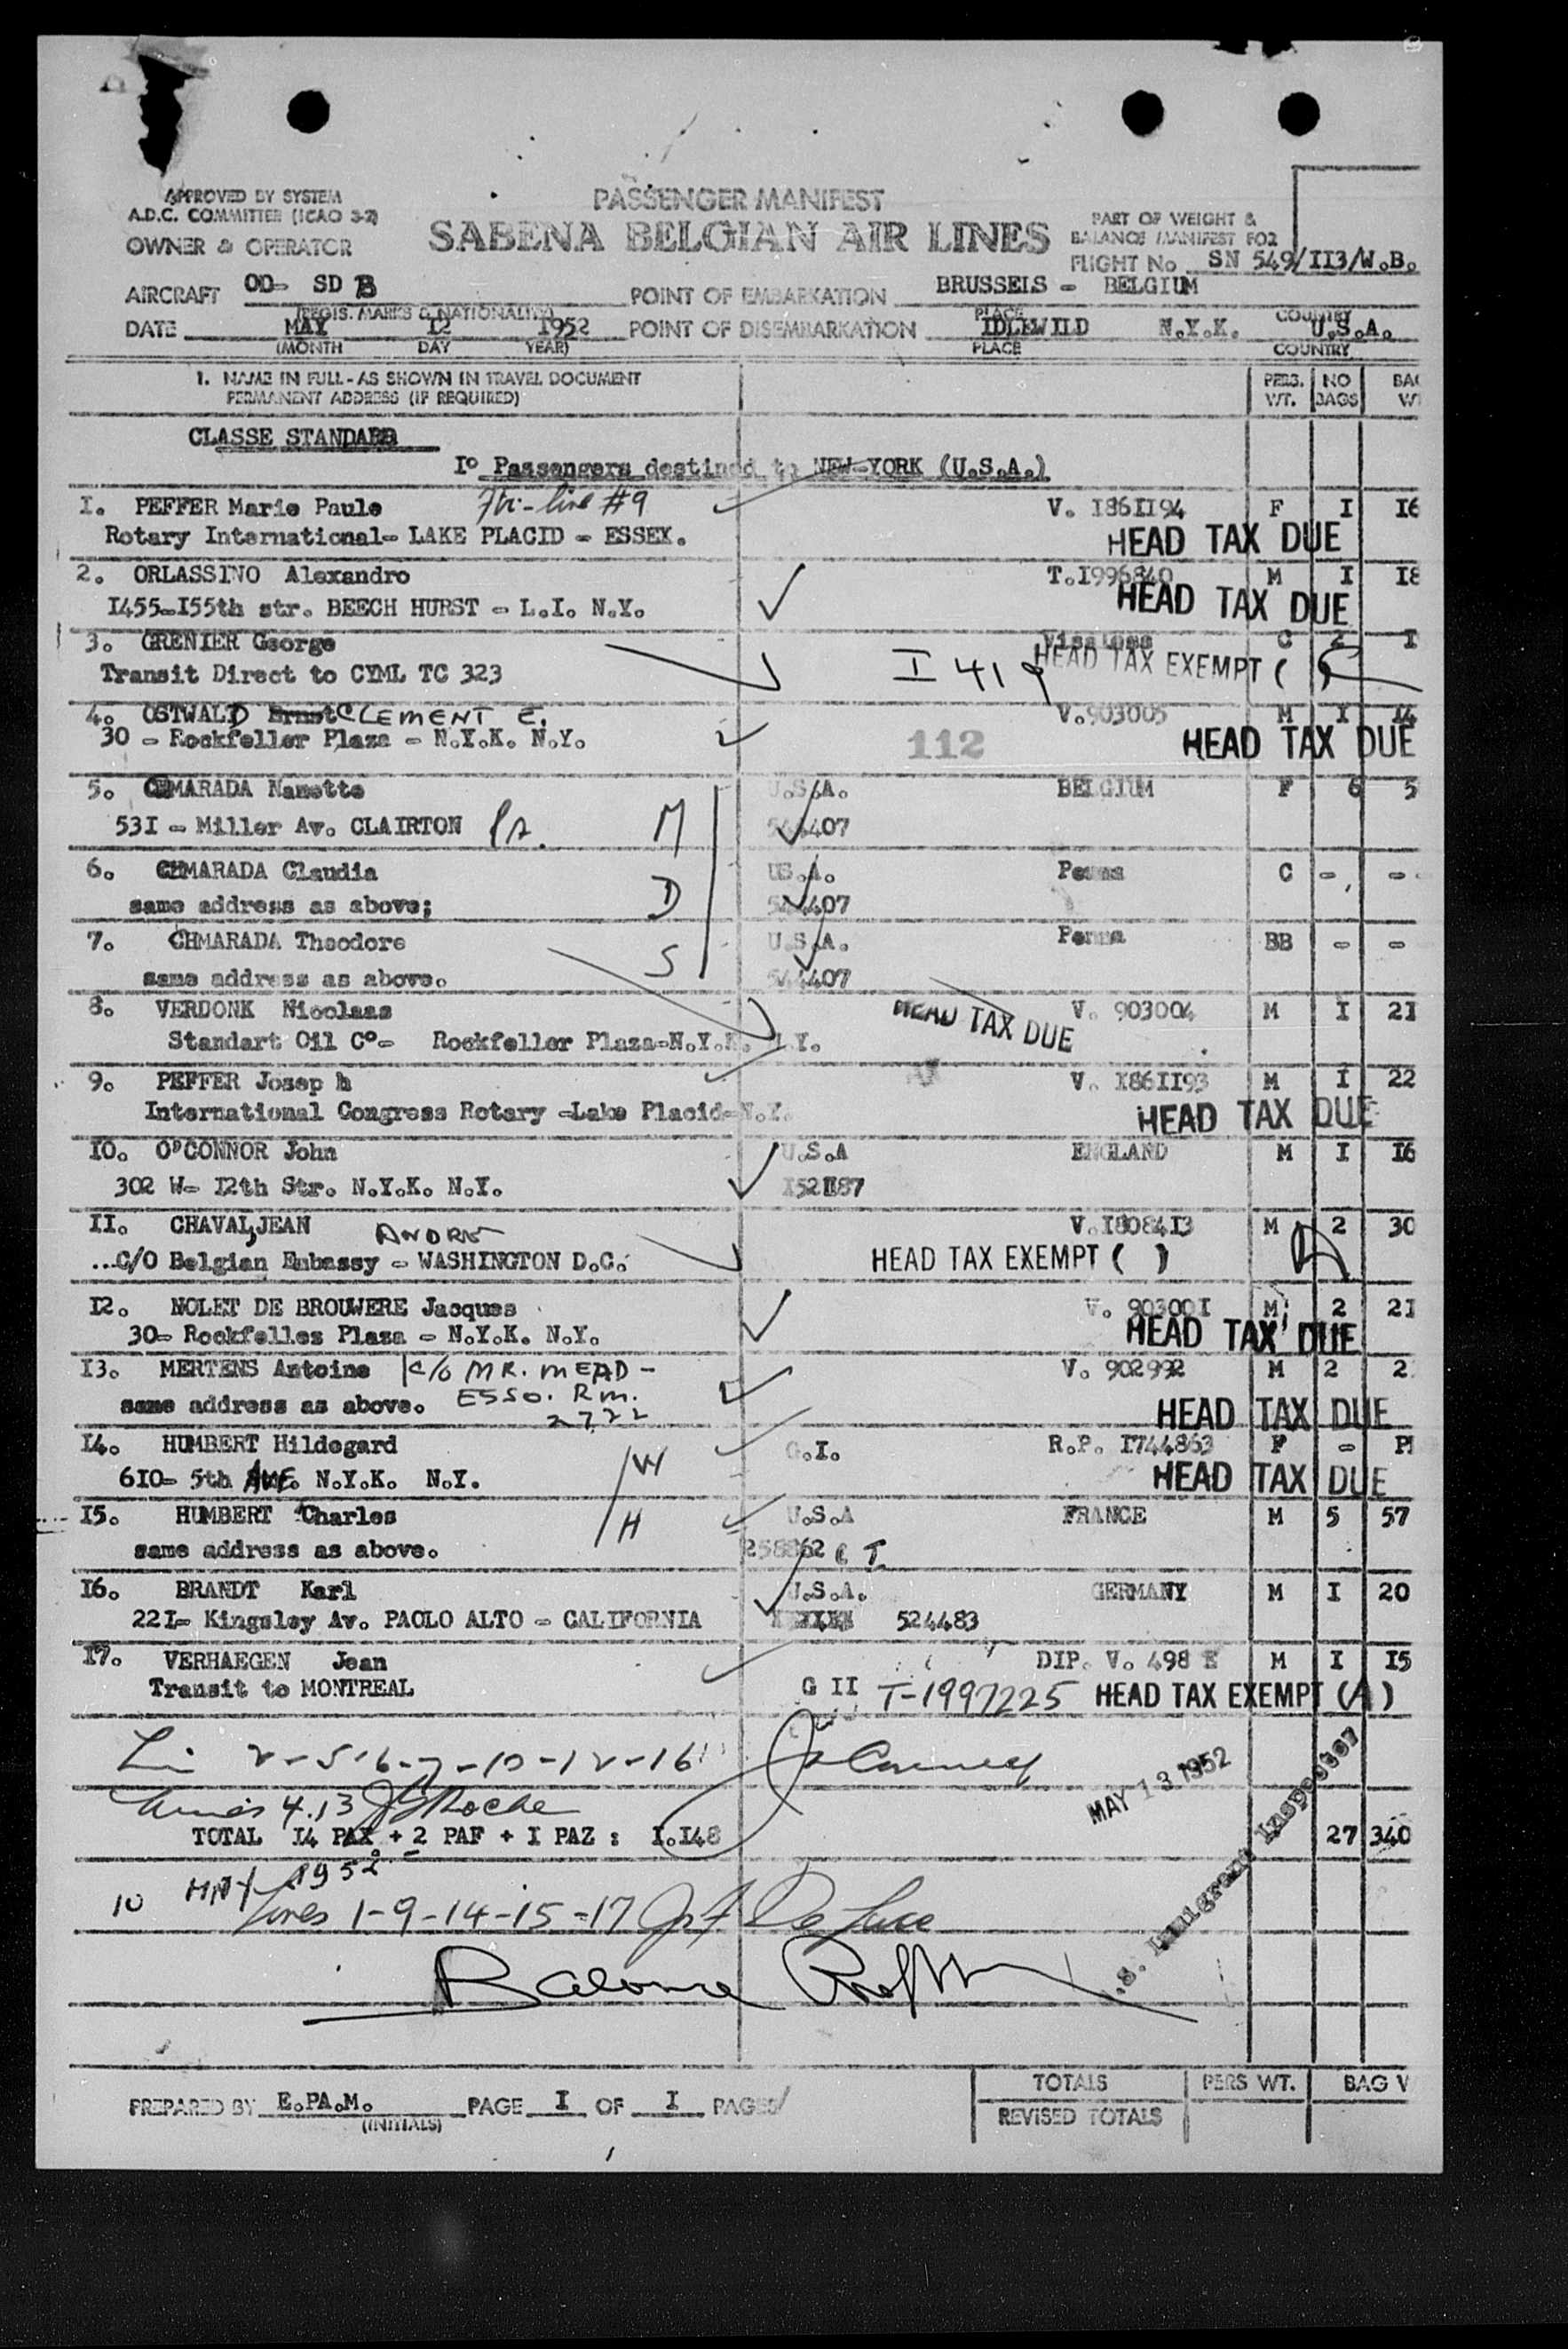 APPROVED BY SYSTEM
A.D.C. COMMITTEE (ICAO 3-2)
OWNER & OPERATOR
PASSENGER MANIFEST
SABENA BELGIAN AIR LINES
PART OF WEIGHT &
BALANCE MANIFEST FO2
FLIGHT No SN 549/II3/W.B.
AIRCRAFT OO- SD B
(REGIS. MARKS & NATIONALITY)
POINT OF EMBARKATION BRUSSELS - BELGIUM
PLACE COUNTRY
DATE MAY 12 1952
(MONTH DAY YEAR)
POINT OF DISEMBARKATION IDLEWILD N.Y.K. U.S.A.
PLACE COUNTRY
1. NAME IN FULL - AS SHOWN IN TRAVEL DOCUMENT
PERMANENT ADDRESS (IF REQUIRED)
PERS. WT. NO BAGS
CLASSE STANDARD
I° Passengers destined to NEW-YORK (U.S.A.)
I. PEFFER Marie Paule #9 V. I86II94 F I I6
Rotary International- LAKE PLACID - ESSEX. HEAD TAX DUE
2. ORLASSINO Alexandro T.I996840 M I I8
I455-I55th str. BEECH HURST - L.I. N.Y. HEAD TAX DUE
3. GRENIER George Visaless C 2 I
Transit Direct to CYML TC 323 I 419 HEAD TAX EXEMPT ( )
4. OSTWALD Ernst CLEMENT E. V.903005 M I I4
30 - Rockfeller Plaza - N.Y.K. N.Y. 112 HEAD TAX DUE
5. CHMARADA Nanette U.S.A. BELGIUM F 6 5
53I - Miller Av. CLAIRTON Pa. M
6. CHMARADA Claudia US.A. Penna C - -
same address as above; D
7. CHMARADA Theodore U.S.A. Penna BB - -
same address as above. S
8. VERDONK Nicolaas V. 903004 M I 21
Standart Oil C°- Rockfeller Plaza-N.Y.K. N.Y. HEAD TAX DUE
9. PEFFER Josep h V. I86II93 M I 22
International Congress Rotary -Lake Placid-N.Y. HEAD TAX DUE
IO. O'CONNOR John U.S.A ENGLAND M I I6
302 W- I2th Str. N.Y.K. N.Y.
II. CHAVAL,JEAN ANDRE V.I8084I3 M 2 30
...C/O Belgian Embassy - WASHINGTON D.C. HEAD TAX EXEMPT ( )
I2. NOLET DE BROUWERE Jacques V. 90300I M 2 2I
30- Rockfelles Plaza - N.Y.K. N.Y. HEAD TAX DUE
I3. MERTENS Antoine c/o MR. MEAD - V. 902992 M 2 2
same address as above. ESSO. Rm. 2722 HEAD TAX DUE
I4. HUMBERT Hildegard W G.I. R.P. I744863 F -
6I0- 5th AVE. N.Y.K. N.Y. HEAD TAX DUE
I5. HUMBERT Charles H U.S.A FRANCE M 5 57
same address as above.
I6. BRANDT Karl U.S.A. GERMANY M I 20
22I- Kingsley Av. PAOLO ALTO - CALIFORNIA 524483
I7. VERHAEGEN Jean DIP. V. 498 E M I I5
Transit to MONTREAL G II T-1997225 HEAD TAX EXEMPT (A)
2-5-6-7-10-12-16
4.13
MAY 13 1952
TOTAL I4 PAX + 2 PAF + I PAZ : I.I48 27 340
1952
10
Lines 1-9-14-15-17
.S. Immigrant Inspector
TOTALS PERS WT.
REVISED TOTALS
PREPARED BY E.PA.M. PAGE I OF I PAGES
(INITIALS)